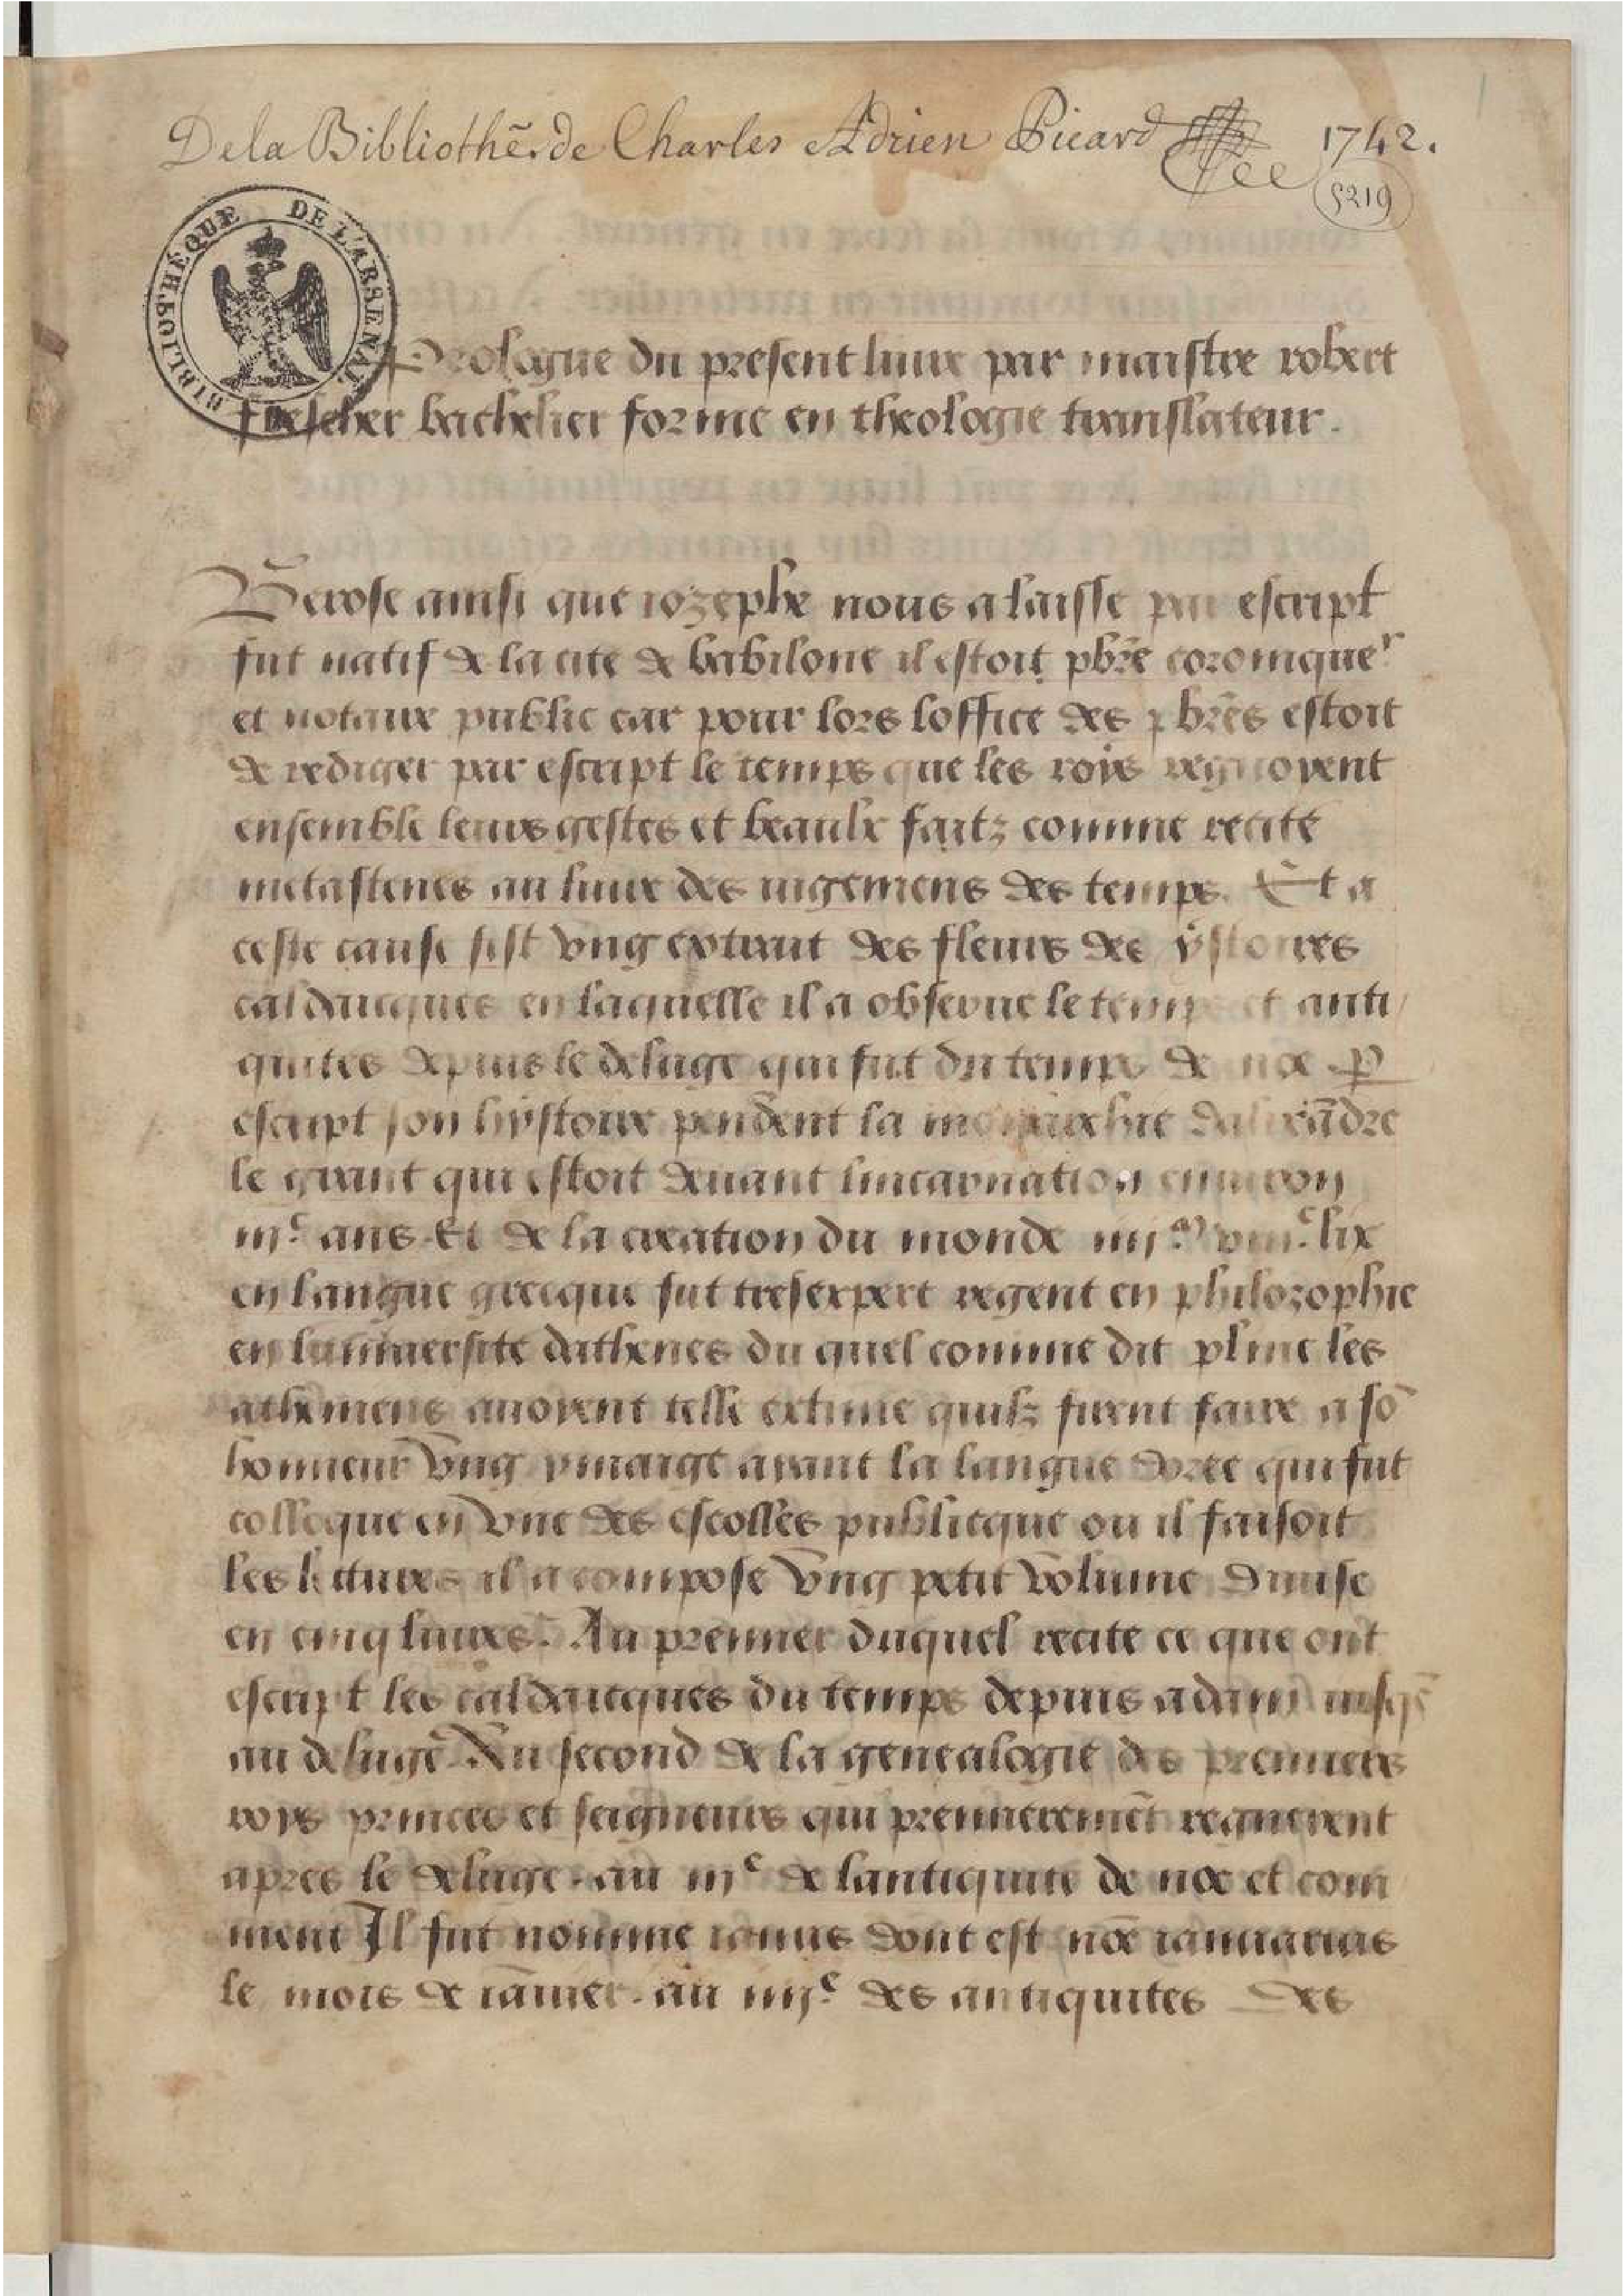 De la Bibliothē. de Charles Adrien Picard 1742.
5219
1
BIBLIOTHÈQUE DE L'ARSENAL
Prologue du present liure par maistre robert
frescher bachelier forme en theologie translateur.
Berose ainsi que iozephe nous a laisse par escript
fut natif de la cite de babilone il estoit pbr̄e coronique^r
et notaire public car pour lors loffice des pbr̄es estoit
de rediger par escript le temps que les roys regnoyent
ensemble leurs gestes et beaulx faitz comme recite
metastenes au liure des iugemens des temps. Et a
ceste cause fist vng extrait des fleurs des ystoires
caldaicques en laquelle il a obserue le temps et anti
quites depuis le deluge qui fut du temps de noe
escript son hystoire pendent la monarchie dalixādre
le grant qui estoit deuant lincarnation enuiron
iij^c ans Et de la creation du monde iiij^m viii^c lix
en langue grecque fut tresexpert regent en philozophie
en luniuersite dathenes du quel comme dit pline les
atheniens auoyent telle extime quilz firent faire a sō
honneur vng ymaige ayant la langue doree qui fut
colloque en vne des escolles publicque ou il faisoit
les lectures il a compose vng petit volume diuise
en cinq liures. Au premier duquel recite ce que ont
escript les caldaicques du temps depuis adam iusq̄
au deluge Au second de la genealogie des premiers
roys princes et seigneurs qui premieremēt regnerent
apres le deluge. au iij^e de lantiquite de noe et com
ment Il fut nomme ianus dont est nōe ianuarius
le mois de iāuier. au iiij^e des antiquites des